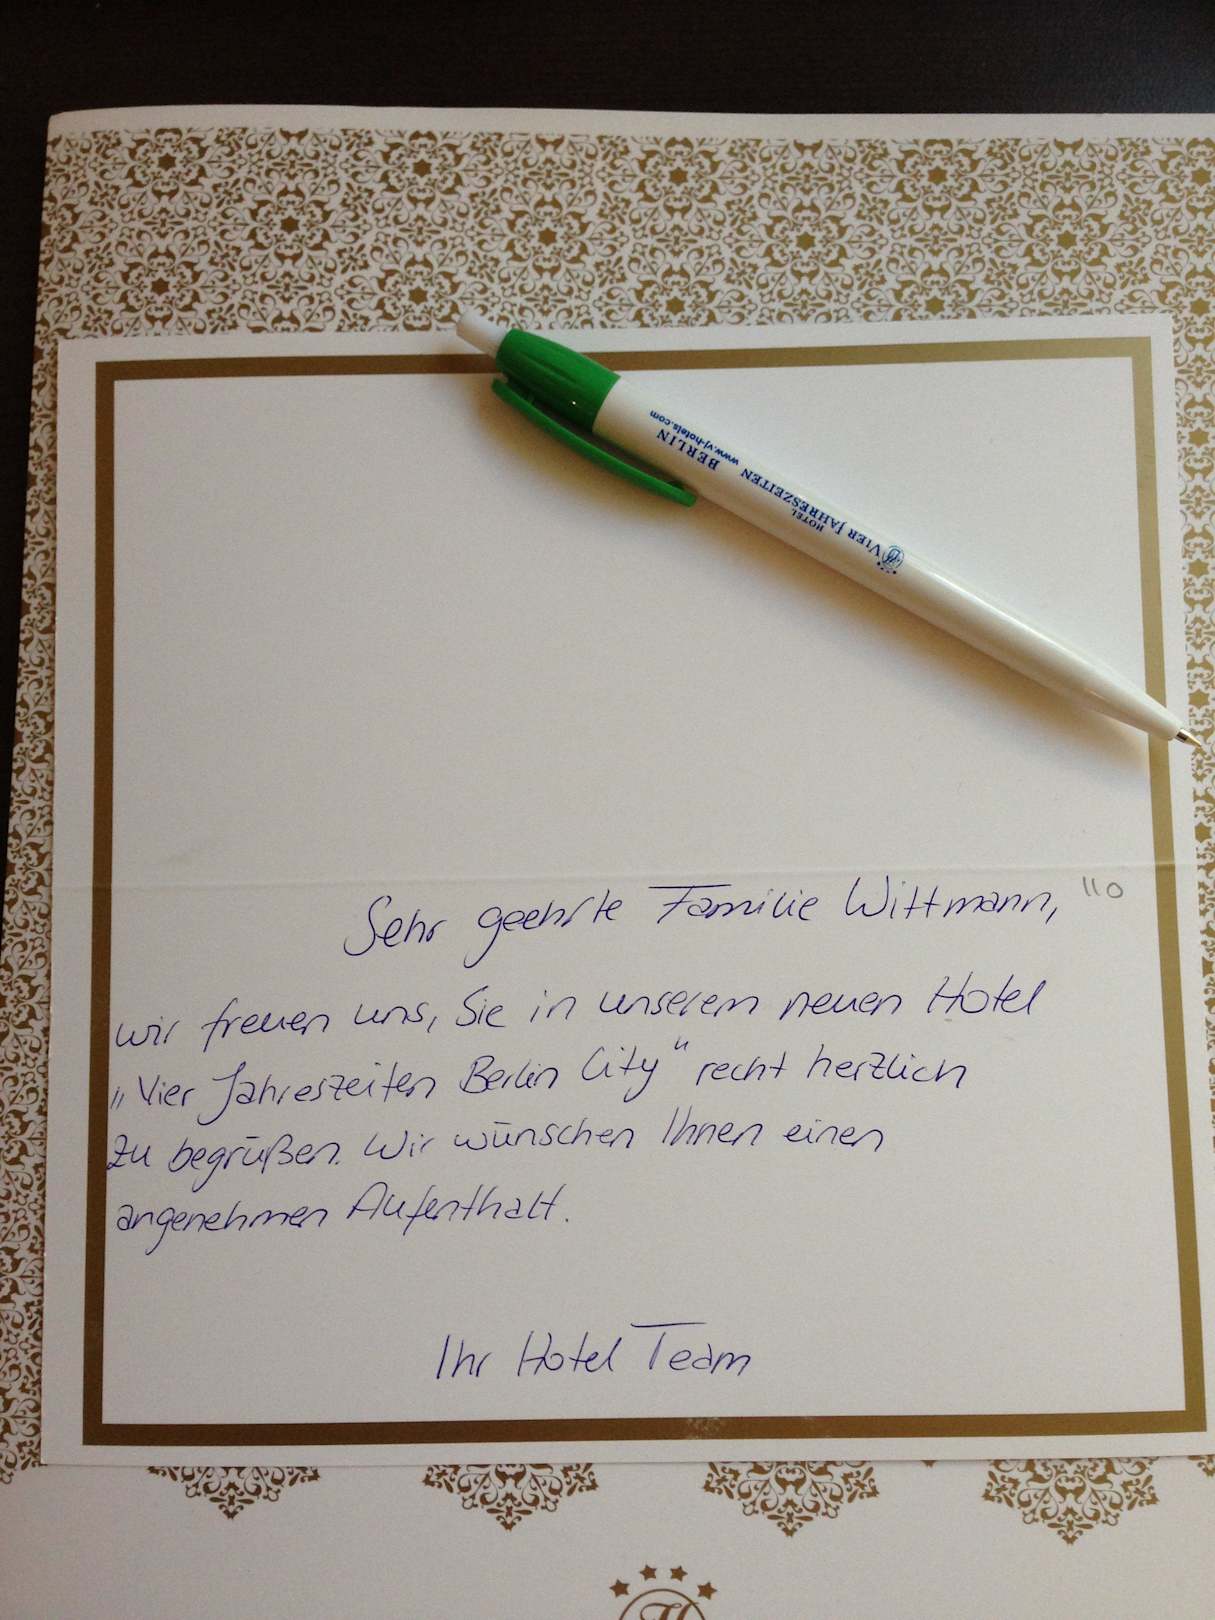 HOTEL
VIER JAHRESZEITEN
BERLIN
www.vj-hotels.com
Sehr geehrte Familie Wittmann, 110
wir freuen uns, Sie in unserem neuen Hotel
„Vier Jahreszeiten Berlin City“ recht herzlich
zu begrüßen. Wir wünschen Ihnen einen
angenehmen Aufenthalt.
Ihr Hotel Team